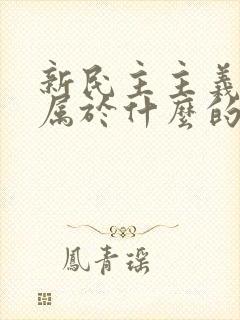 新民主主義
属於什麼的
鳳青瑶